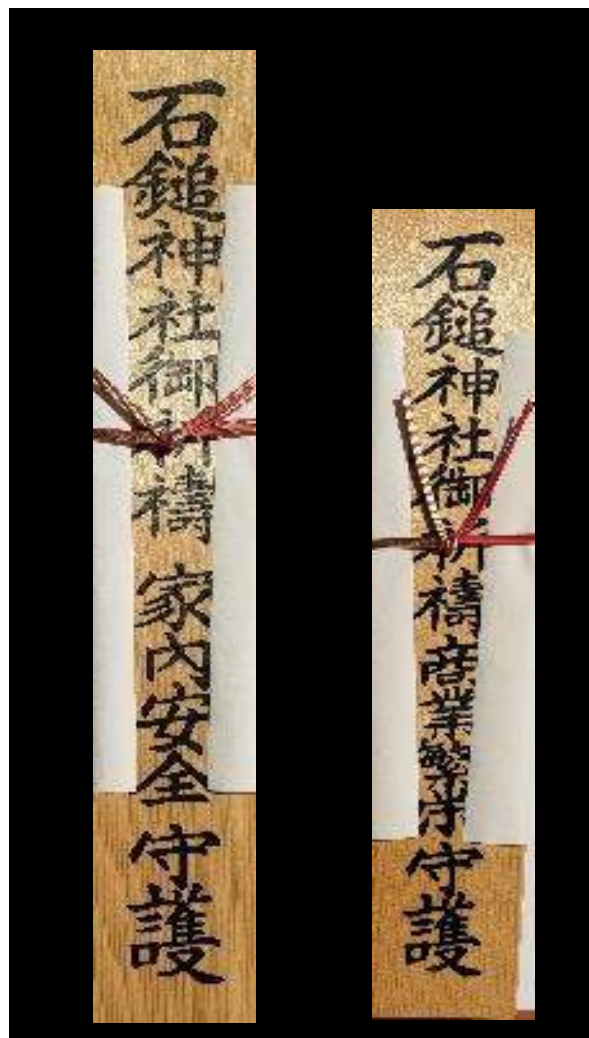 石鎚神社御祈禱 家内安全 守護
石鎚神社御祈禱 商業繁栄 守護